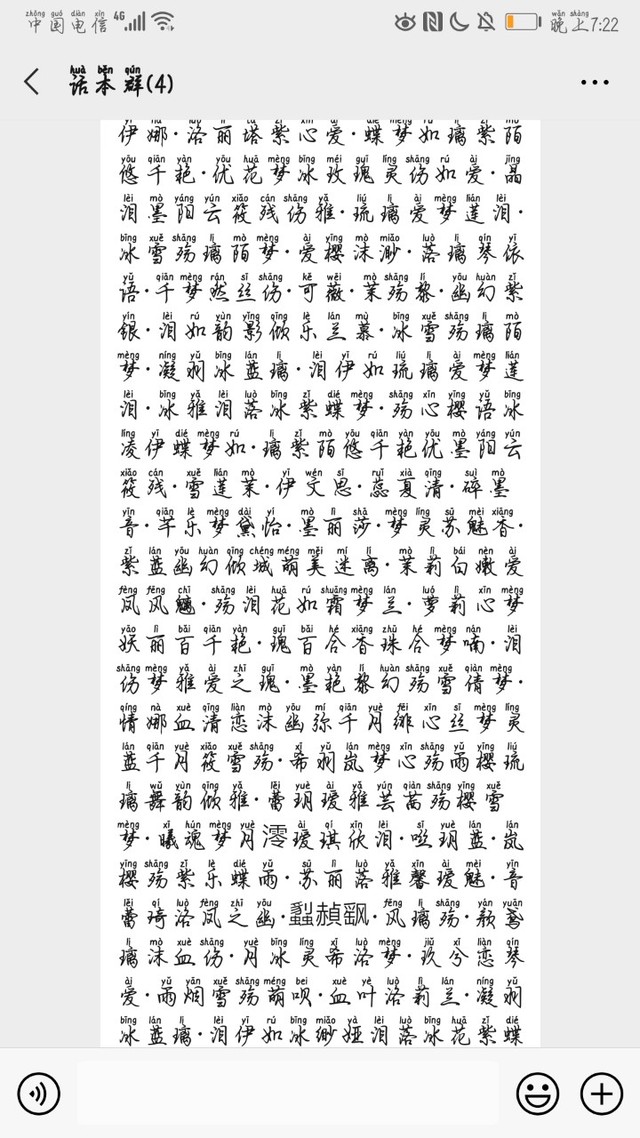 中国电信 4G 晚上7:22
话本群(4)
伊娜·洛丽塔紫心爱·蝶梦如璃紫陌
悠千艳·优花梦冰玫瑰灵伤如爱·晶
泪墨阳云筱残伤雅·琉璃爱梦莲泪·
冰雪殇璃陌梦·爱樱沫渺·落璃琴依
语·千梦然丝伤·可薇·茉殇黎·幽幻紫
银·泪如韵影倾乐兰慕·冰雪殇璃陌
梦·凝羽冰蓝璃·泪伊如琉璃爱梦莲
泪·冰雅泪落冰紫蝶梦·殇心樱语冰
凌伊蝶梦如·璃紫陌悠千艳优墨阳云
筱残·雪莲茉·伊文思·蕊夏清·碎墨
音·芊乐梦黛怡·墨丽莎·梦灵苏魅香·
紫蓝幽幻倾城萌美迷离·茉莉白嫩爱
凤风魑·殇泪花如霜梦兰·萝莉心梦
妖丽百千艳·瑰百合香珠合梦喃·泪
伤梦雅爱之瑰·墨艳黎幻殇雪倩梦·
情娜血清恋沫幽弥千月绯心丝梦灵
蓝千月筱雪殇·希羽岚梦心殇雨樱琉
璃舞韵倾雅·蕾玥瑷雅芸茜殇樱雪
梦·曦魂梦月澪瑷琪欣泪·咝玥蓝·岚
樱殇紫乐蝶雨·苏丽落雅馨瑷魅·音
蕾琦洛凤之幽··风璃殇·颜鸢
璃沫血伤·月冰灵希洛梦·玖兮恋琴
爱·雨烟雪殇萌呗·血叶洛莉兰·凝羽
冰蓝璃·泪伊如冰缈娅泪落冰花紫蝶